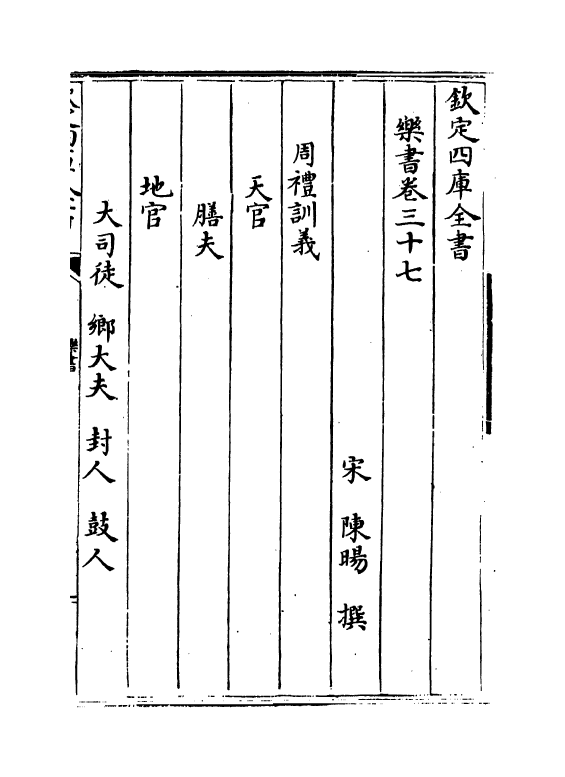 欽定四庫全書
樂書卷三十七
宋 陳暘 撰
周禮訓義
天官
膳夫
地官
大司徒 鄉大夫 封人 鼓人